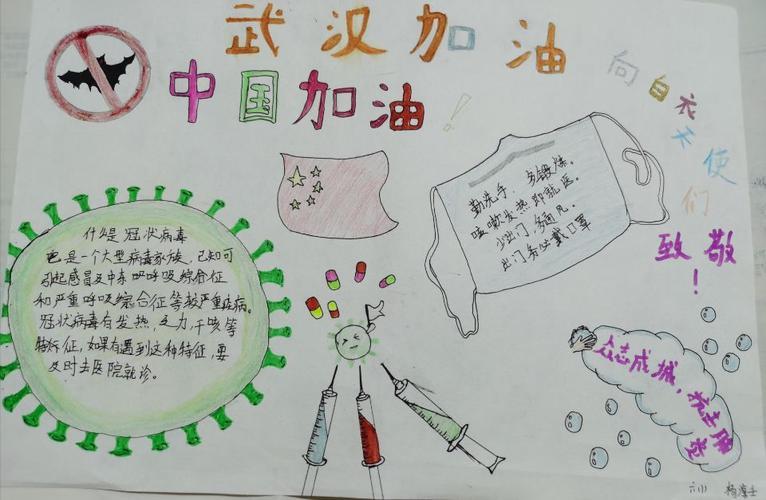 武汉加油
中国加油!
向白衣天使们
致敬!
什么是冠状病毒
它是一个大型病毒家族,已知可
引起感冒及中东呼吸综合征
和严重呼吸综合征等较严重疾病。
冠状病毒有发热,乏力,干咳等
特征,如果有遇到这种特征,要
及时去医院就诊。
勤洗手,多锻炼。
咳嗽发热即就医。
少出门多通风。
出门务必戴口罩
众志成城,抗击肺炎
六(1)